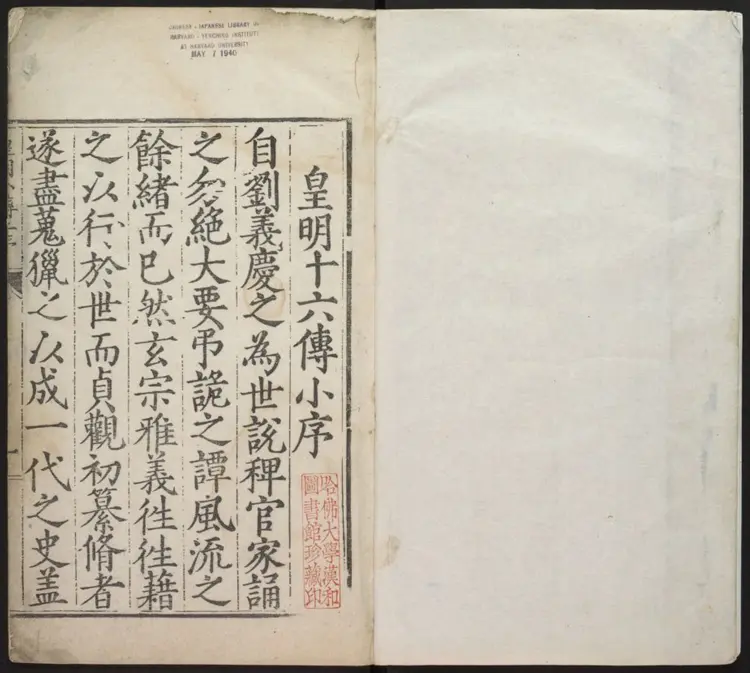 CHINESE - JAPANESE LIBRARY OF
HARVARD - YENCHING INSTITUTE
AT HARVARD UNIVERSITY
MAY 7 1940
皇明十六傳小序
自劉義慶之為世說稗官家誦
之勿絶大要弔詭之譚風流之
餘緒而已然玄宗雅義徃徃藉
之以行於世而貞觀初纂脩者
遂盡蒐獵之以成一代之史盖
哈佛大學漢和
圖書館珍藏印